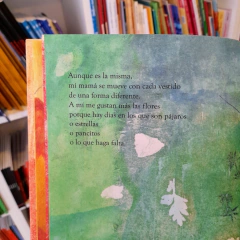 Aunque es la misma,
mi mamá se mueve con cada vestido
de una forma diferente.
A mí me gustan más las flores
porque hay días en los que son pájaros
o estrellas
o pancitos
o lo que haga falta.